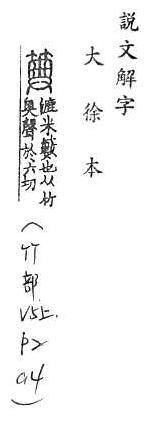 說文解字
大徐本
䉛 漉米籔也从竹
奥聲於六切
(竹部
V5上.
P2
a4)